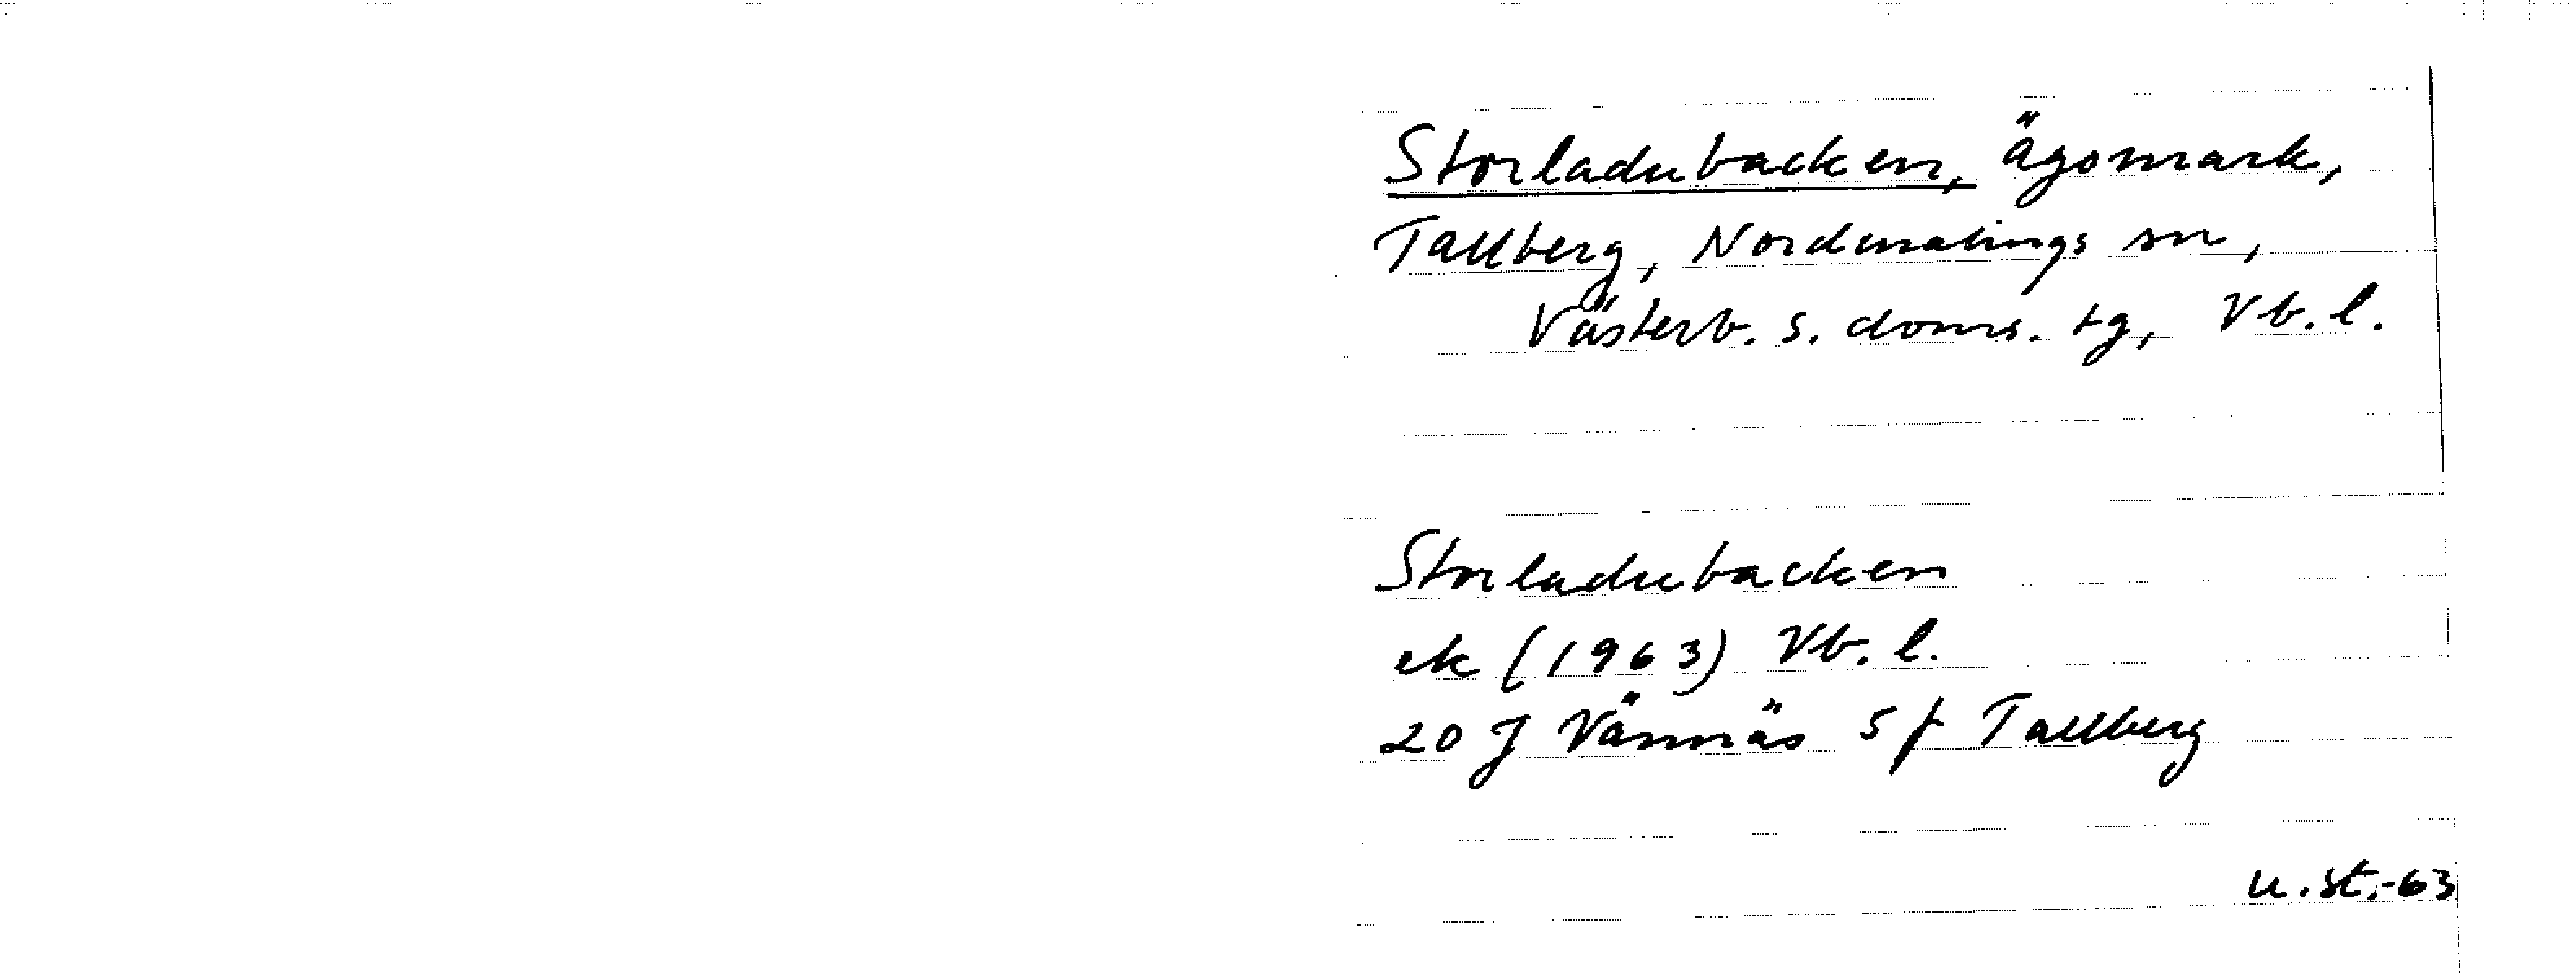 Storladubacken, ägomark,
Tallberg, Nordmalings sn,
Västerb. s. doms. tg, Vb. l.
Storladubacken
ek (1963) Vb. l.
20 J Vännäs 5 f Tallberg
u.st.-63